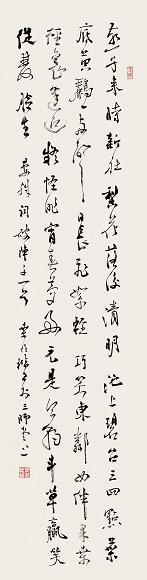 燕子来時新社梨花落後清明池上碧苔三四點葉
底黄鸝一兩聲日長飛絮輕巧笑東鄰女伴采桑
徑裏逢迎疑怪昨宵春夢好元是今朝斗草贏笑
從雙臉生 晏殊詞破陣子一首